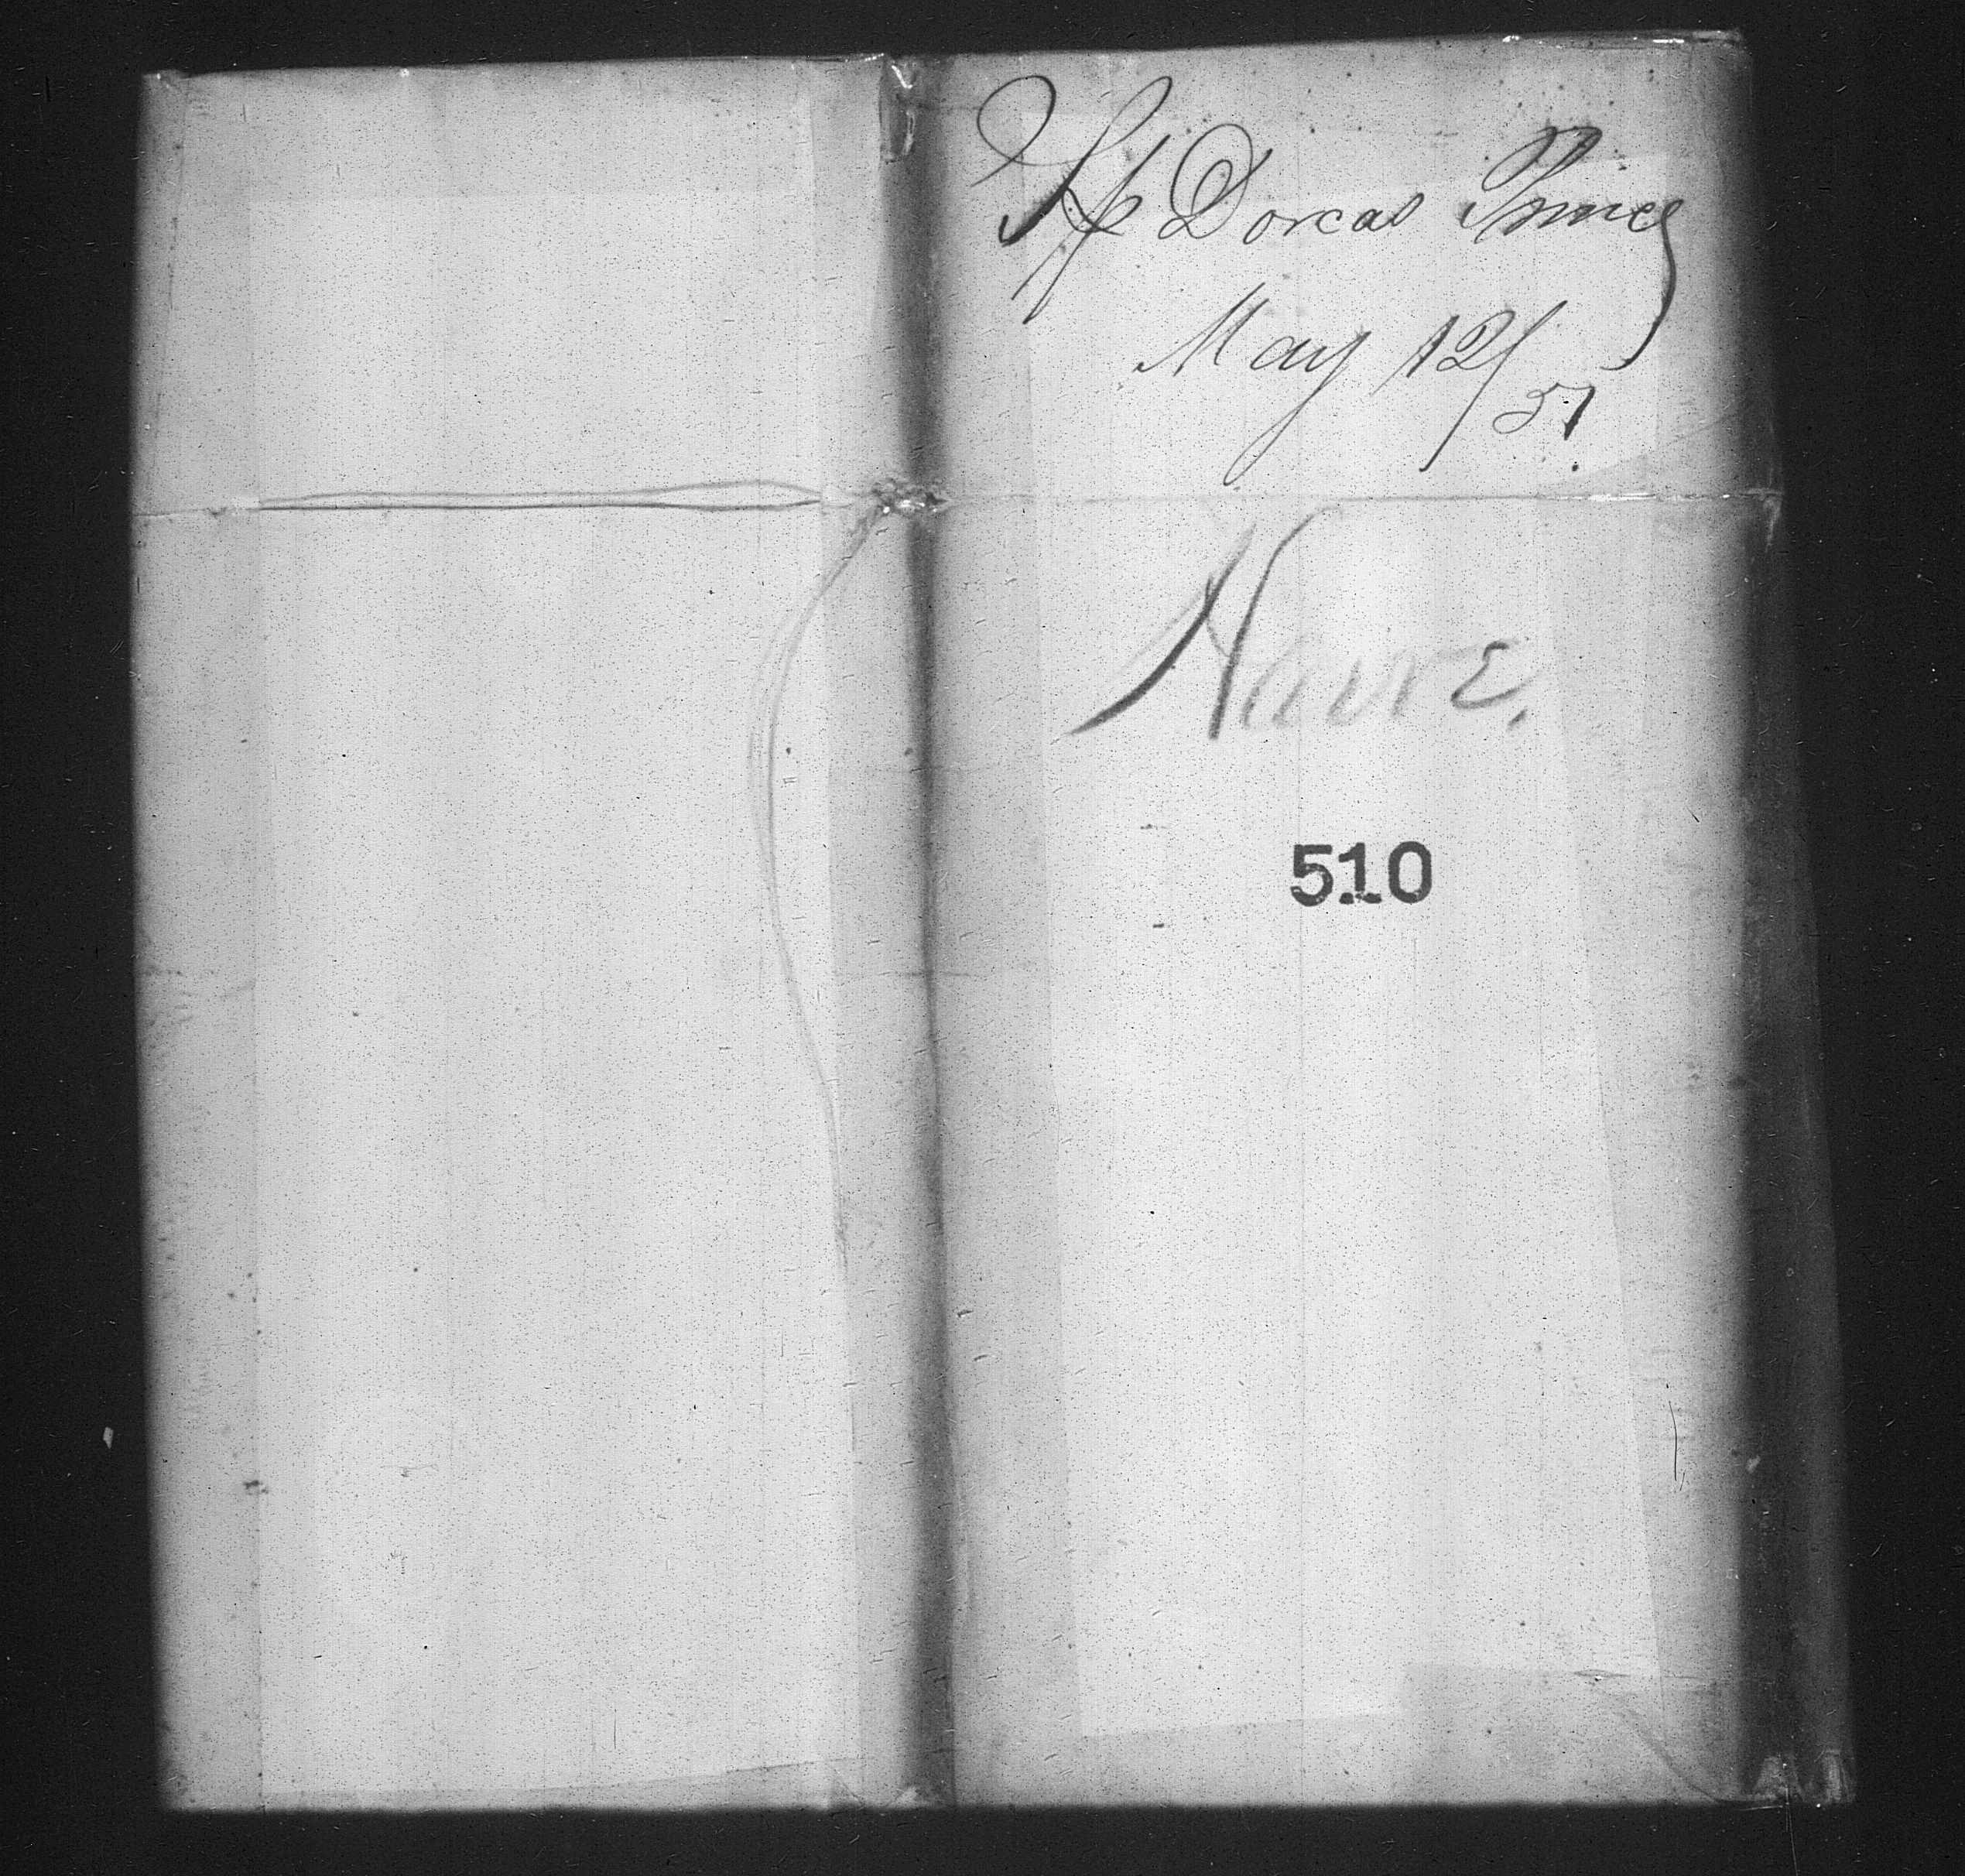 Dorcas Prince
May 12/51
Havre.
510